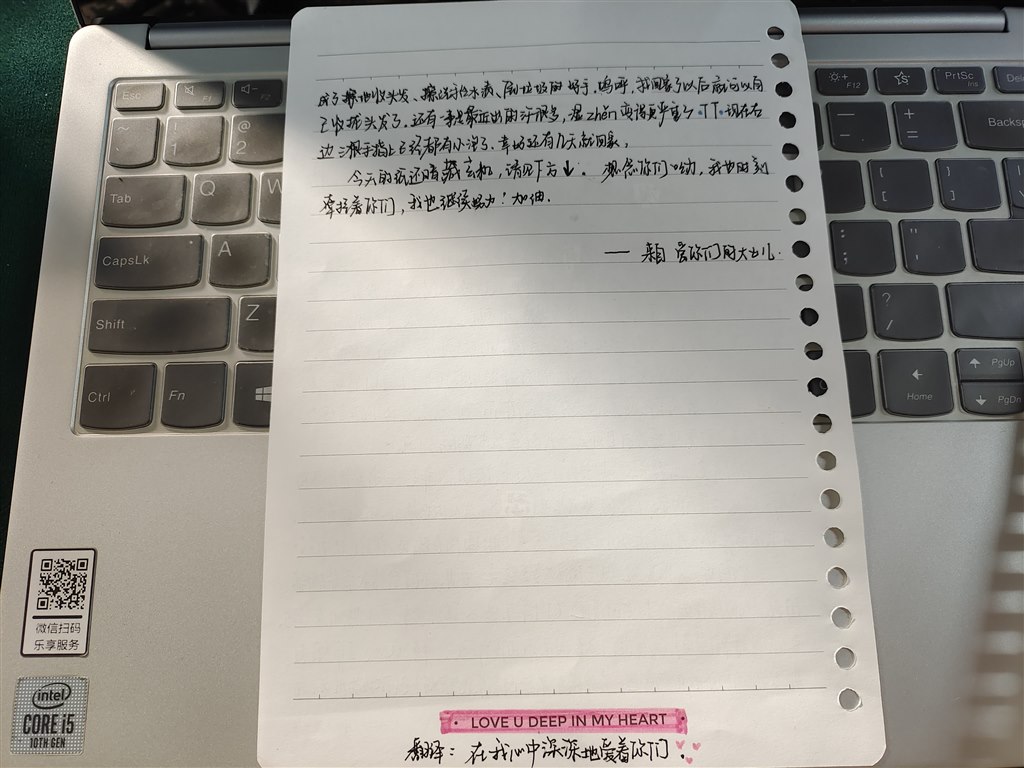 成了擦地收头发、擦洗、倒垃圾的好手。呜呼,我回家了以后应该可以自
己收拢头发了。还有一事是最近出的汗很多,湿zhěn变得更严重了·TT·现在右
边三根手指上已经都有小泡了、幸好还有几天就回家。
今天的纸还暗藏玄机,请见下方↓。想念你们哟,我也时刻
牵挂着你们,我也继续努力!加油.
—— 来自 爱你们的大女儿.
LOVE U DEEP IN MY HEART
翻译:在我心中深深地爱着你们!
Esc
F1
F2
F12
PrtSc
Ins
Del
~
!
1
@
2
—
-
+
=
Backs
Tab
Q
W
CapsLk
A
:
;
Shift
Z
?
/
Ctrl
Fn
Home
PgUp
PgDn
微信扫码
乐享服务
intel
CORE i5
10TH GEN